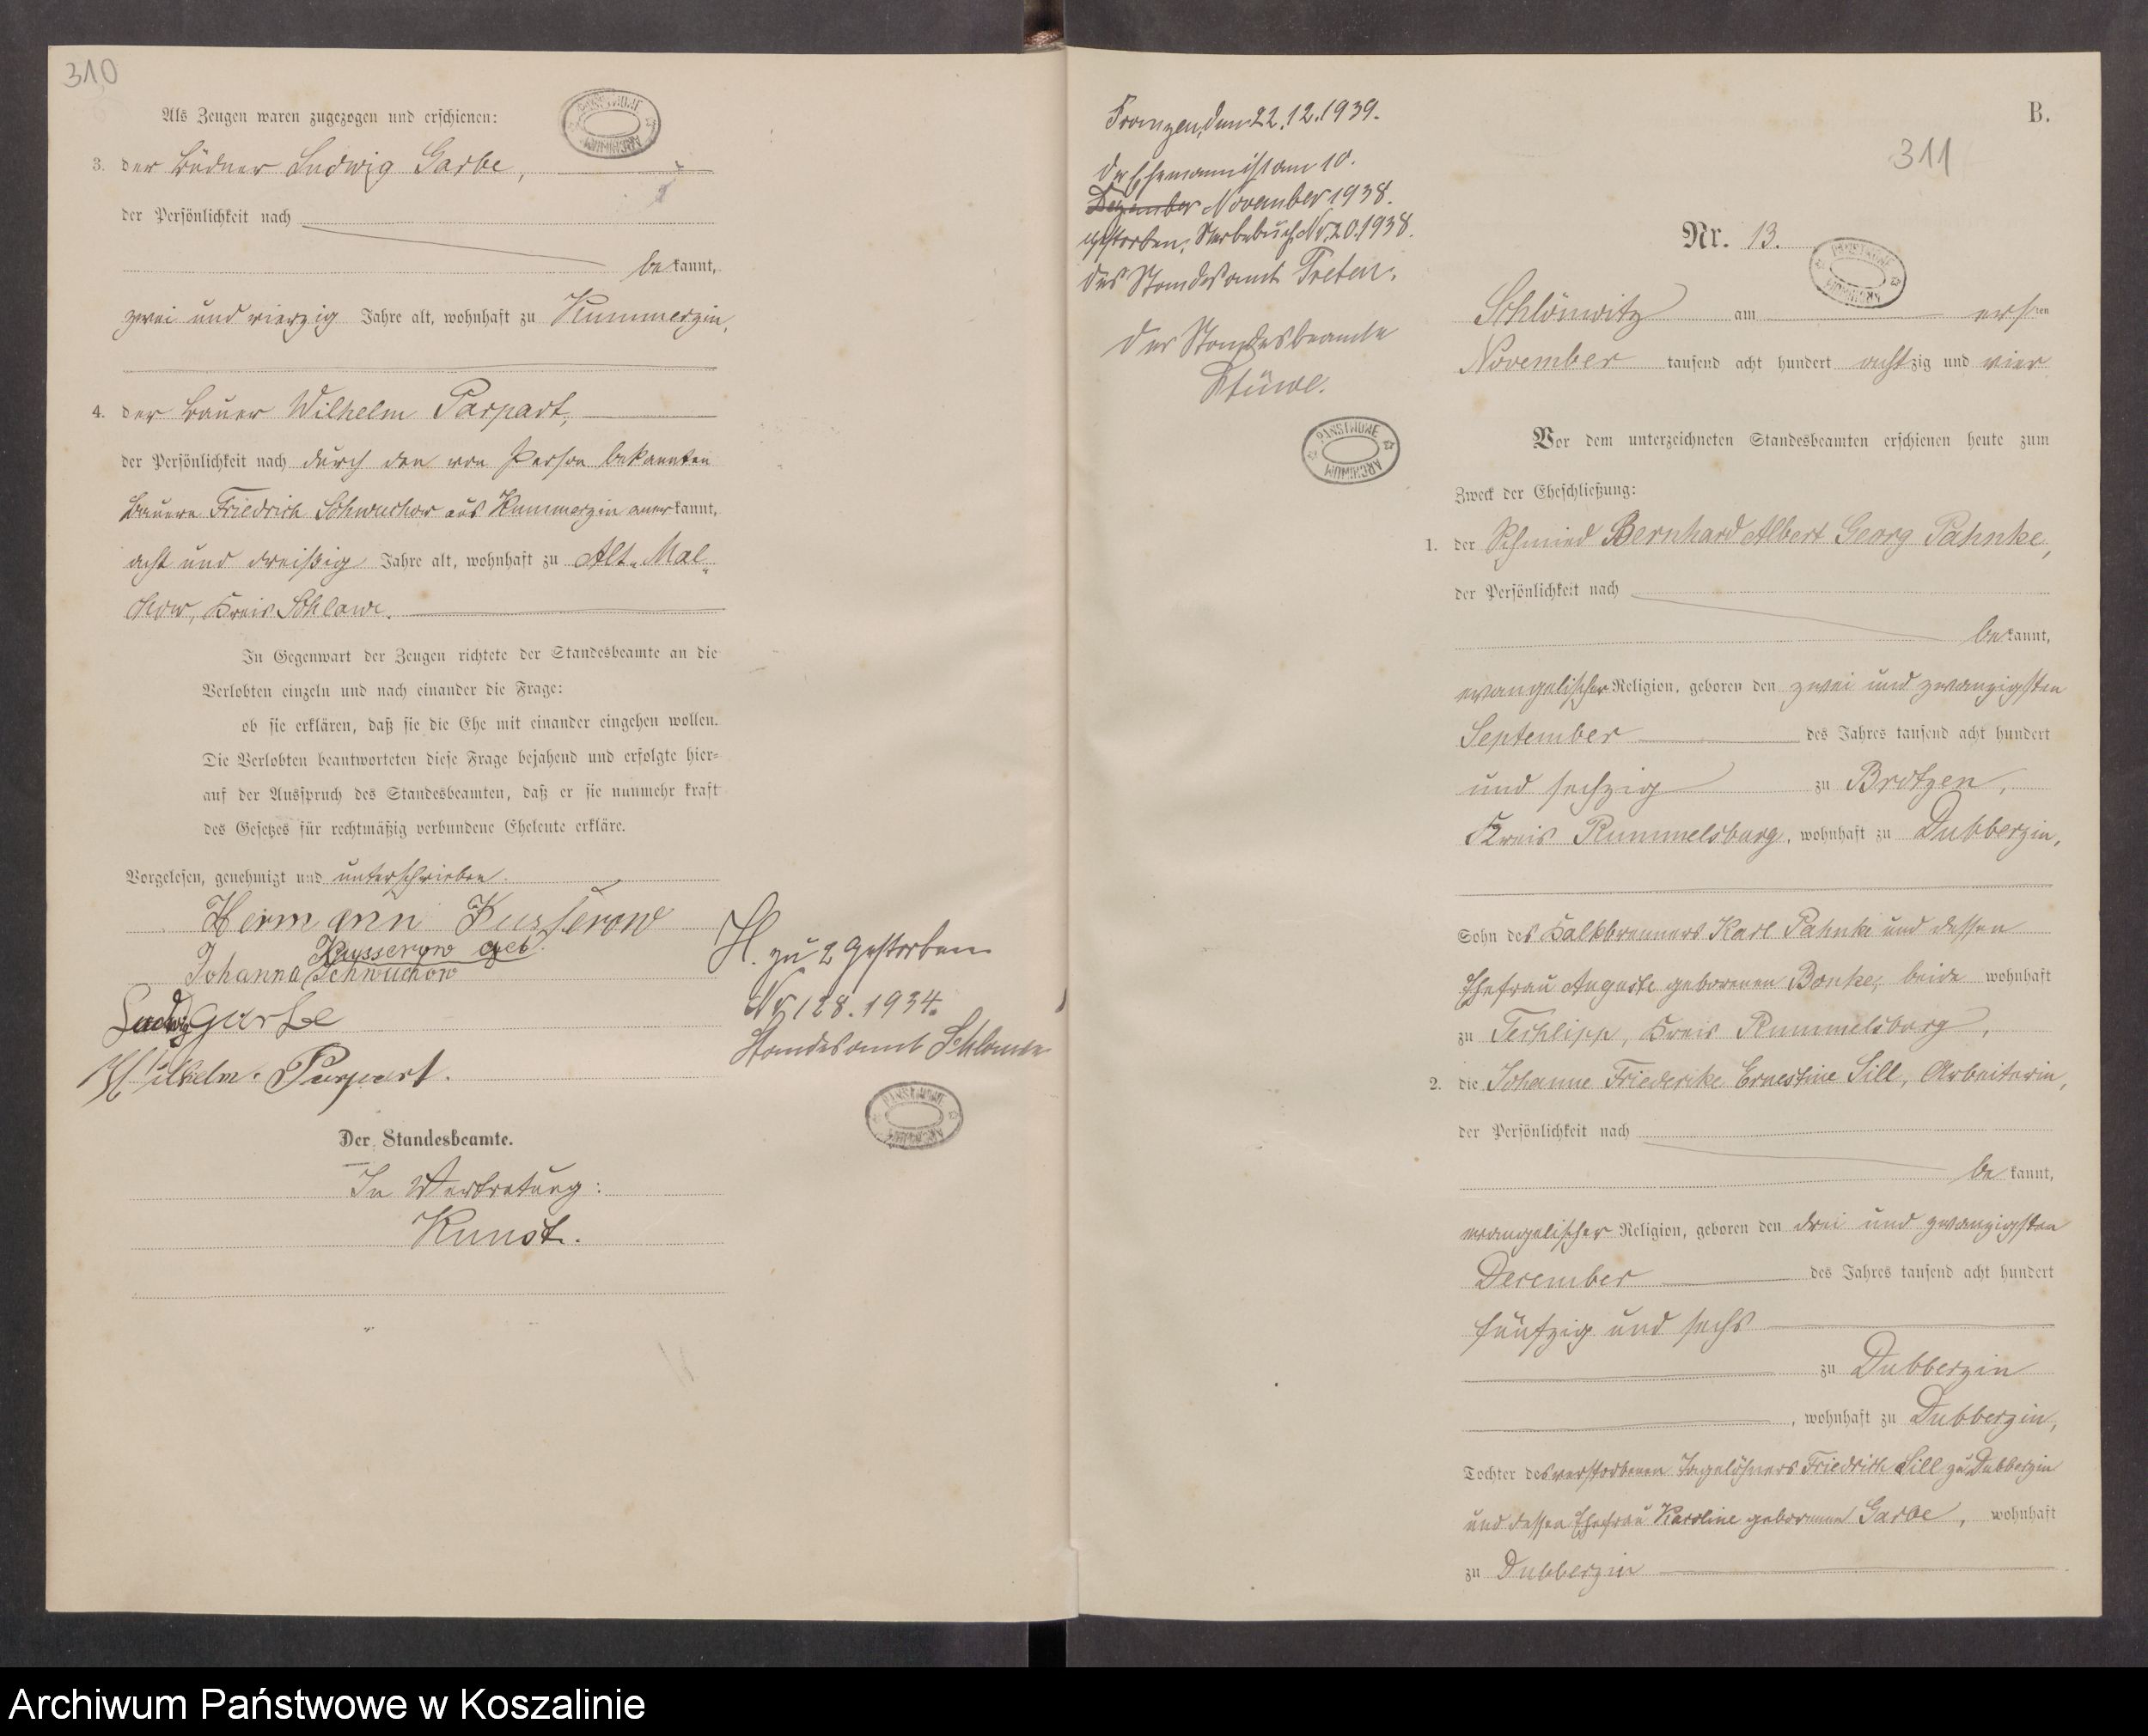 310
Als Zeugen waren zugezogen und erschienen:
PANSTWOWE ARCHIWUM
3. der Büdner Ludwig Garbe,
der Persönlichkeit nach
bekannt,
zwei und vierzig Jahre alt, wohnhaft zu Kummerzin,
4. der Bauer Wilhelm Parpart,
der Persönlichkeit nach durch den von Person bekannten
Bauern Friedrich Schwuchow aus Kummerzin anerkannt,
acht und dreißig Jahre alt, wohnhaft zu Alt-Mal-
chow, Kreis Schlawe.
In Gegenwart der Zeugen richtete der Standesbeamte an die
Verlobten einzeln und nach einander die Frage:
ob sie erklären, daß sie die Ehe mit einander eingehen wollen.
Die Verlobten beantworteten diese Frage bejahend und erfolgte hier-
auf der Ausspruch des Standesbeamten, daß er sie nunmehr kraft
des Gesetzes für rechtmäßig verbundene Eheleute erkläre.
Vorgelesen, genehmigt und unterschrieben.
Hermann Kusserow
Kusserow geb.
Johanna Schwuchow
Ludwig Garbe
Wilhelm Parpart.
H. zu 2 gestorben
Nr 128. 1934.
Standesamt Schlawe
PANSTWOWE ARCHIWUM
Der Standesbeamte.
In Vertretung:
Kunst.
den 22.12.1939.
Der Ehemann ist am 10.
Dezember November 1938.
gestorben. Sterbebuch Nr. 20.1938.
des Standesamt Treten.
Der Standesbeamte
Stüwe.
PANSTWOWE ARCHIWUM
B.
311
Nr. 13.
PANSTWOWE ARCHIWUM
Schlönwitz am ersten
November tausend acht hundert achtzig und vier
Vor dem unterzeichneten Standesbeamten erschienen heute zum
Zweck der Eheschließung:
1. der Schmied Bernhard Albert Georg Pahnke,
der Persönlichkeit nach
bekannt,
evangelischer Religion, geboren den zwei und zwanzigsten
September des Jahres tausend acht hundert
und sechzig zu Brotzen,
Kreis Rummelsburg, wohnhaft zu Dubberzin,
Sohn des Kalkbrenners Karl Pahnke und dessen
Ehefrau Auguste geborenen Bonke, beide wohnhaft
zu Techlipp, Kreis Rummelsburg,
2. die Johanne Friederike Ernestine Sill, Arbeiterin,
der Persönlichkeit nach
bekannt,
evangelischer Religion, geboren den drei und zwanzigsten
December des Jahres tausend acht hundert
fünfzig und sechs
zu Dubberzin
, wohnhaft zu Dubberzin,
Tochter des verstorbenen Tagelöhners Friedrich Sill zu Dubberzin
und dessen Ehefrau Karoline geborenen Garbe, wohnhaft
zu Dubberzin
Archiwum Państwowe w Koszalinie